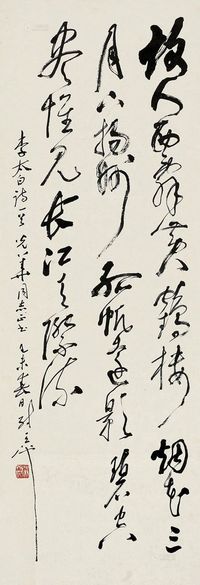 故人西辞黄鹤楼烟花三
月下扬州孤帆远影碧空
尽惟见长江天际流
李太白诗一首 光华同志正书 乙未春日